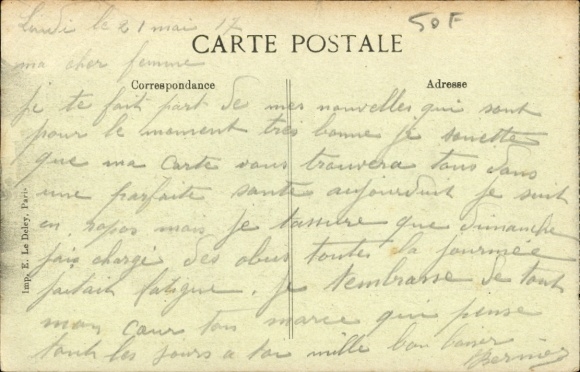 Lundi le 21 mai 17
50F
CARTE POSTALE
ma cher femme
Correspondance
Adresse
je te fait part de mes nouvelles qui sont
pour le moment très bonne je souette
que ma carte vous trouvera tous dans
une parfaite sante aujourduit je suit
en repos mais je tassure que dimanche
jais chargé des obus toutes la journée
jaitait fatigue. je tembrasse de tout
mon cœur ton mari qui pense
tout les jours a toi mille bon baiser
Imp. E. Le Deley, Paris